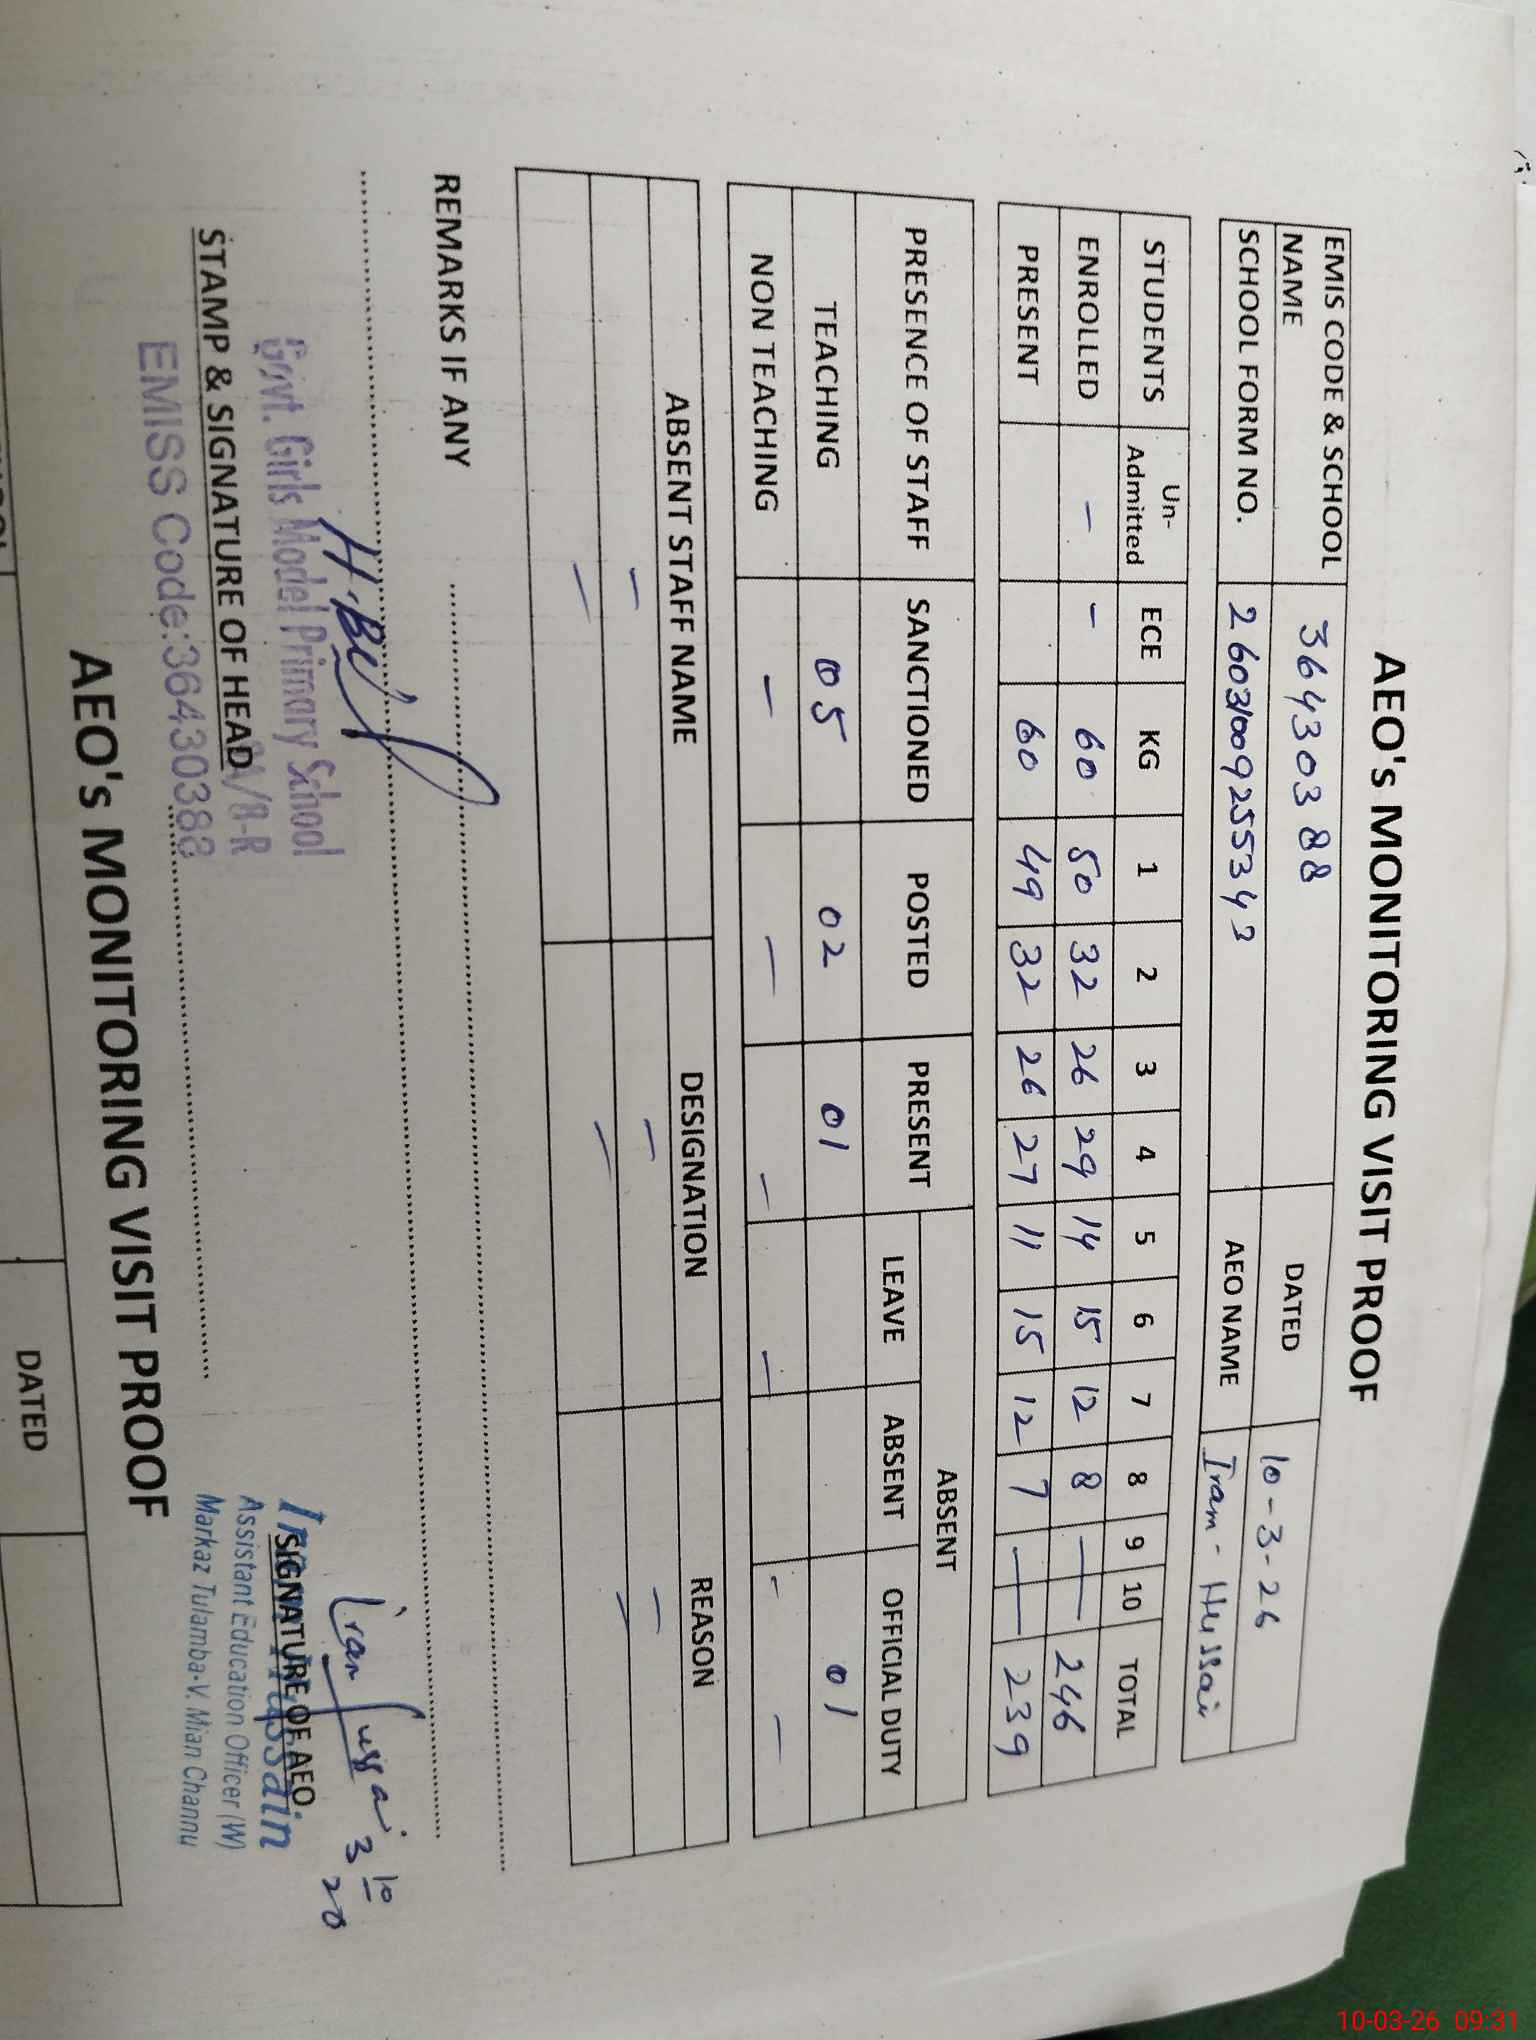 AEO's MONITORING VISIT PROOF
EMIS CODE & SCHOOL NAME 36430388 DATED 10-3-26
SCHOOL FORM NO. 2603100925534 AEO NAME Iram - Hussain
STUDENTS Un-Admitted ECE KG 1 2 3 4 5 6 7 8 9 10 TOTAL
ENROLLED - - 60 50 32 26 29 14 15 12 8 — 246
PRESENT 60 49 32 26 27 11 15 12 7 — 239
PRESENCE OF STAFF SANCTIONED POSTED PRESENT ABSENT
LEAVE ABSENT OFFICIAL DUTY
TEACHING 05 02 01 01
NON TEACHING - - - - - -
ABSENT STAFF NAME DESIGNATION REASON
- - -
- - -
REMARKS IF ANY
Govt. Girls Model Primary School
/8-R
STAMP & SIGNATURE OF HEAD
EMISS Code:36430388
10
3
SIGNATURE OF AEO
Iram Hussain
Assistant Education Officer (W)
Markaz Tulamba-V. Mian Channu
AEO's MONITORING VISIT PROOF
DATED
10-03-26 09:31